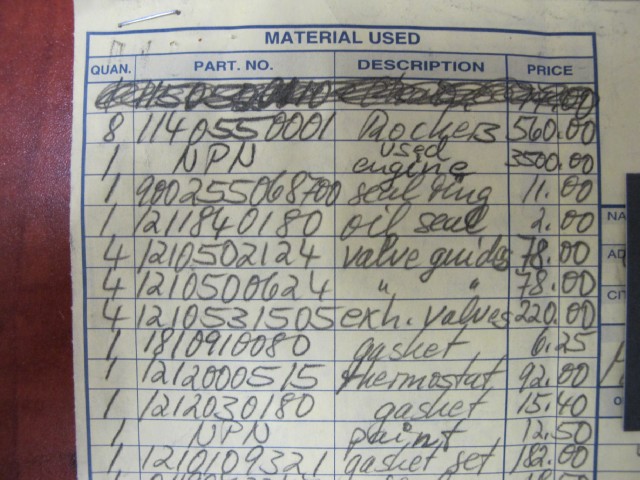 MATERIAL USED
QUAN. PART. NO. DESCRIPTION PRICE
8 1140550001 Rockers 560.00
1 NPN used engine 3500.00
1 900255068700 seal ring 11.00
1 1211840180 oil seal 2.00
4 1210502124 valve guides 78.00
4 1210500624 " " 78.00
4 1210531505 exh. valves 220.00
1 1810910080 gasket 6.25
1 1212000515 thermostat 92.00
1 1212030180 gasket 15.40
1 NPN paint 12.50
1 1210109321 gasket set 182.00
NA
AD
CIT